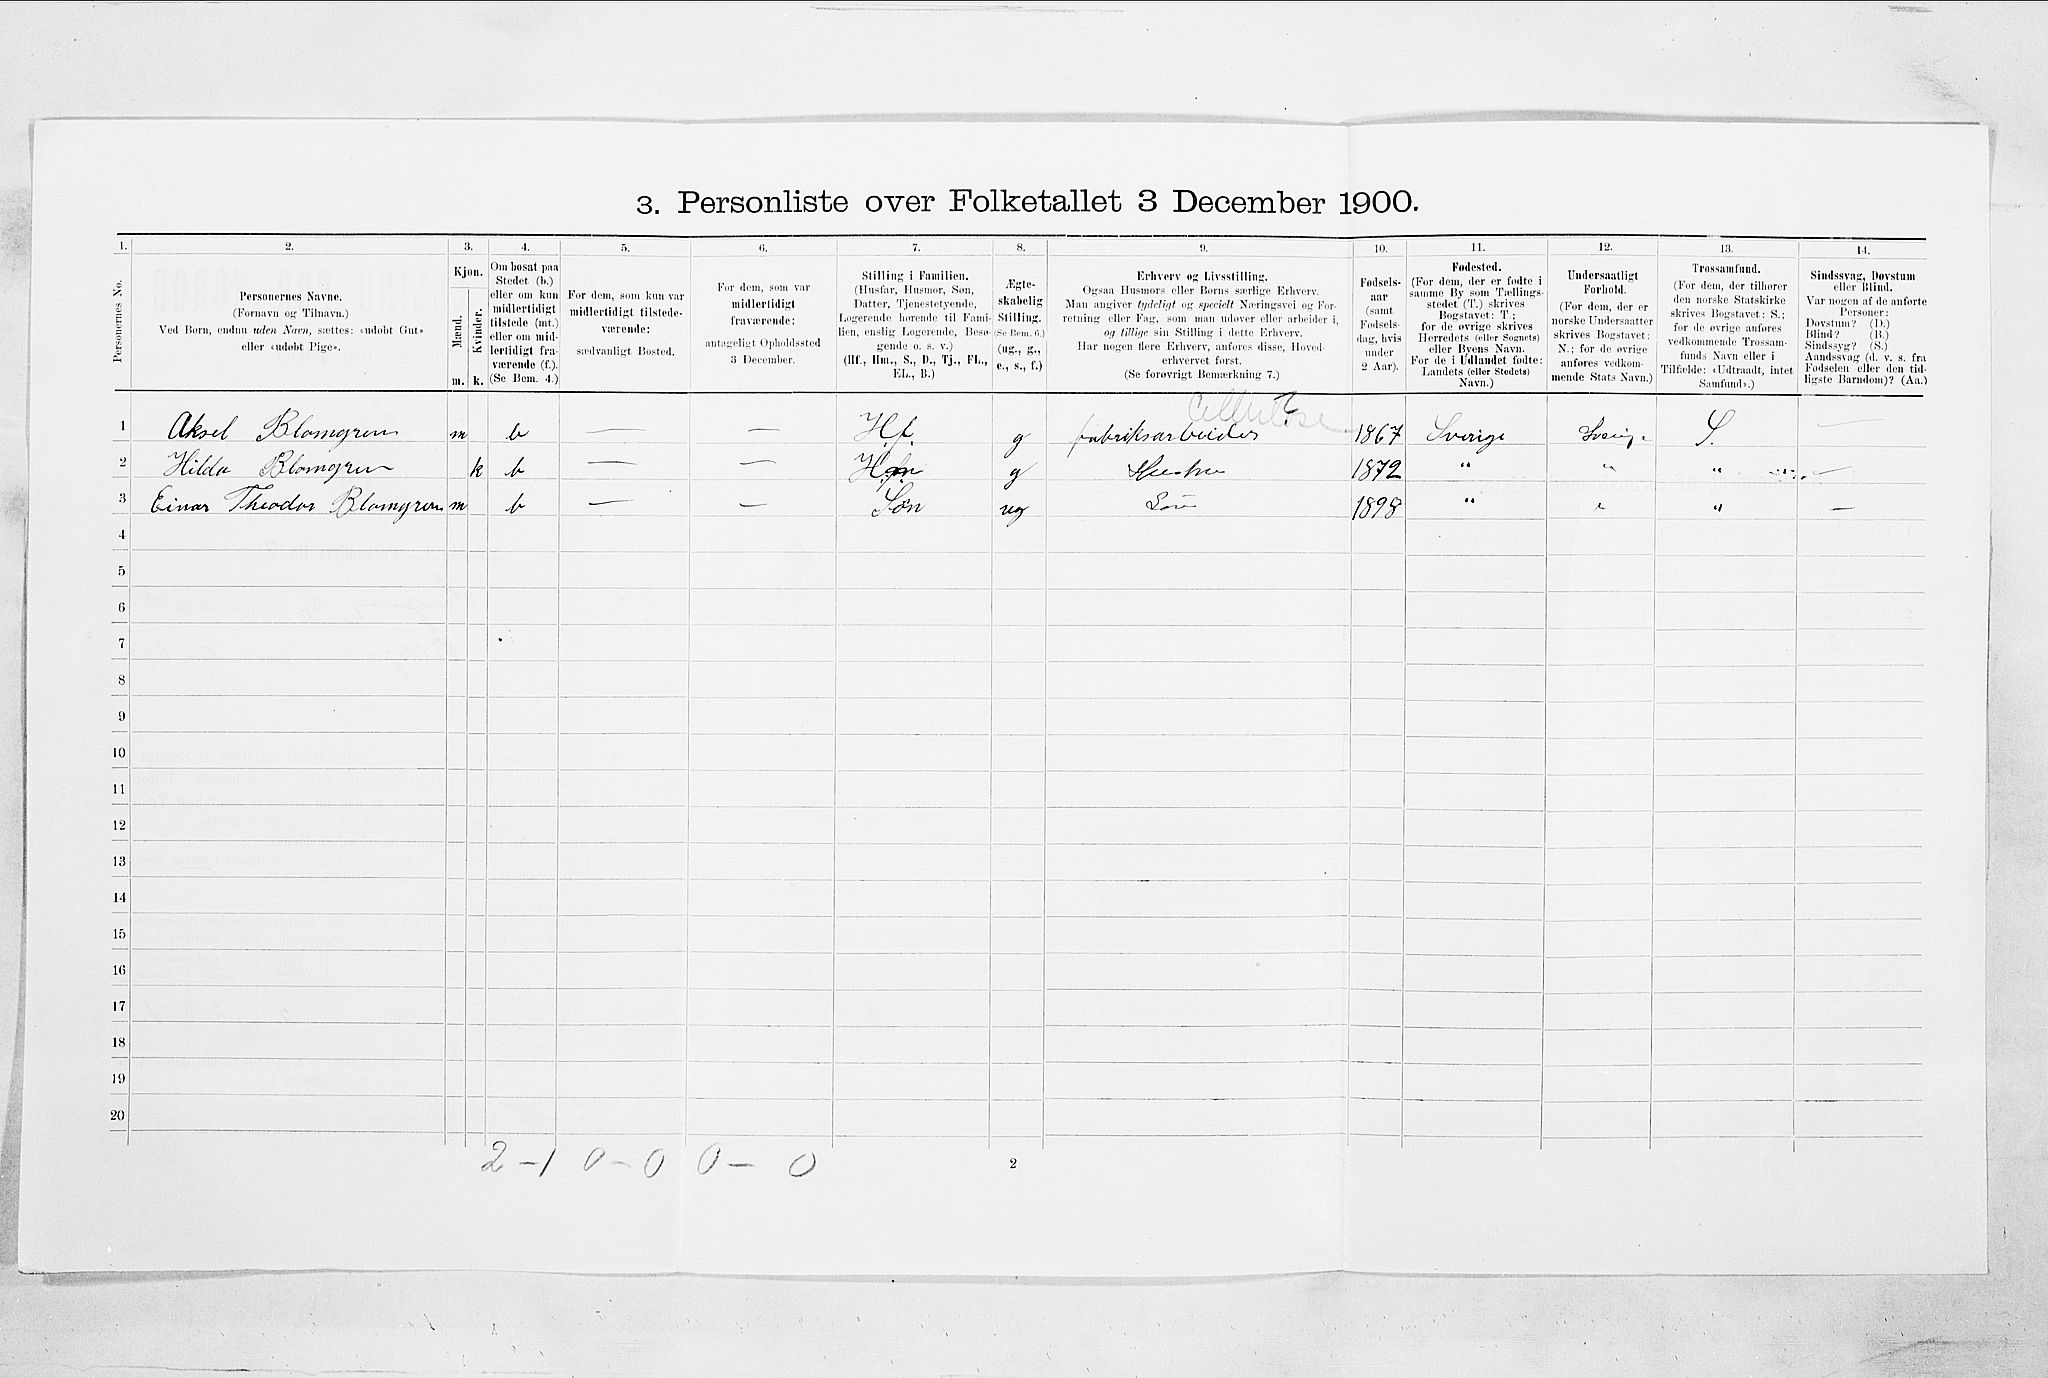 3. Personliste over Folketallet 3 December 1900.
1. 2. 3. 4. 5. 6. 7. 8. 9. 10. 11. 12. 13. 14.
Personernes No.
Personernes Navne.
(Fornavn og Tilnavn.)
Ved Børn, endnu uden Navn, sættes: «udøbt Gut»
eller «udøbt Pige».
Kjøn.
Mænd.
Kvinder.
m. k.
Om bosat paa
Stedet (b.)
eller om kun
midlertidigt
tilstede (mt.)
eller om mid-
lertidigt fra-
værende (f.).
(Se Bem. 4.)
For dem, som kun var
midlertidigt tilstede-
værende:
sædvanligt Bosted.
For dem, som var
midlertidigt
fraværende:
antageligt Opholdssted
3 December.
Stilling i Familien.
(Husfar, Husmor, Søn,
Datter, Tjenestetyende,
Logerende hørende til Fami-
lien, enslig Logerende, Besø-
gende o. s. v.)
(Hf., Hm., S., D., Tj., FL.,
EL., B.)
Ægte-
skabelig
Stilling.
(Se Bem. 6.)
(ug., g.,
e., s., f.)
Erhverv og Livsstilling.
Ogsaa Husmors eller Børns særlige Erhverv.
Man angiver tydeligt og specielt Næringsvei og For-
retning eller Fag, som man udøver eller arbeider i,
og tillige sin Stilling i dette Erhverv.
Har nogen flere Erhverv, anføres disse, Hoved-
erhvervet først.
(Se forøvrigt Bemærkning 7.)
Fødsels-
aar
(samt
Fødsels-
dag, hvis
under
2 Aar).
Fødested.
(For dem, der er fødte i
samme By som Tællings-
stedet (T.) skrives
Bogstavet: T.;
for de øvrige skrives
Herredets (eller Sognets)
eller Byens Navn.
For de i Udlandet fødte:
Landets (eller Stedets)
Navn.)
Undersaatligt
Forhold.
(For dem, der er
norske Undersaatter
skrives Bogstavet:
N.; for de øvrige
anføres vedkom-
mende Stats Navn.)
Trossamfund.
(For dem, der tilhører
den norske Statskirke
skrives Bogstavet: S.;
for de øvrige anføres
vedkommende Trossam-
funds Navn eller i
Tilfælde: «Udtraadt, intet
Samfund».)
Sindssvag, Døvstum
eller Blind.
Var nogen af de anførte
Personer:
Døvstum? (D.)
Blind? (B.)
Sindssyg? (S.)
Aandssvag (d. v. s. fra
Fødselen eller den tid-
ligste Barndom)? (Aa.)
Cellulose
1 Aksel Blomgren m b — — H.f. g fabriksarbeider 1867 Sverige Sverige S. —
2 Hilda Blomgren k b — — H.m g Hustru 1872 " " " —
3 Einar Theodor Blomgren m b — — Søn ug Søn 1898 " " " —
4
5
6
7
8
9
10
11
12
13
14
15
16
17
18
19
20
2 - 1 0 - 0 0 - 0
2